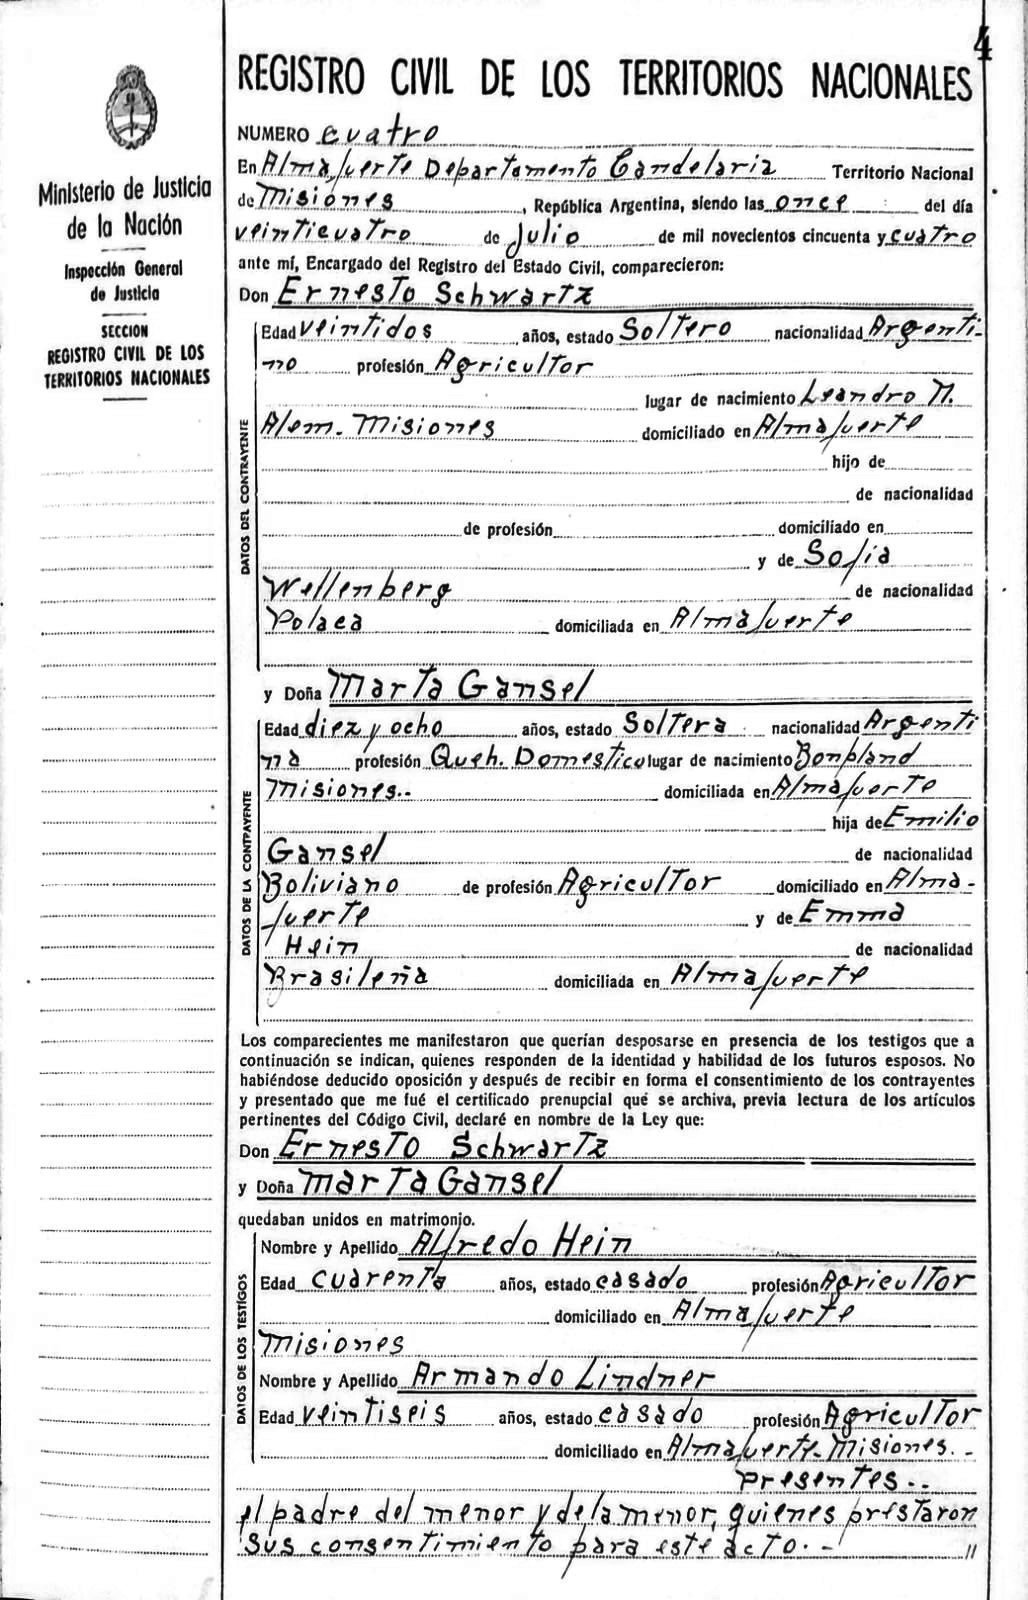 4
REGISTRO CIVIL DE LOS TERRITORIOS NACIONALES
Ministerio de Justicia
de la Nación
Inspección General
de Justicia
SECCION
REGISTRO CIVIL DE LOS
TERRITORIOS NACIONALES
NUMERO cuatro
En Almafuerte Departamento Candelaria Territorio Nacional
de Misiones, República Argentina, siendo las once del día
veinticuatro de Julio de mil novecientos cincuenta y cuatro
ante mí, Encargado del Registro del Estado Civil, comparecieron:
Don Ernesto Schwartz
DATOS DEL CONTRAYENTE
Edad veintidos años, estado Soltero nacionalidad Argenti-
no profesión Agricultor
lugar de nacimiento Leandro N.
Alem. Misiones domiciliado en Almafuerte
hijo de
de nacionalidad
de profesión domiciliado en
y de Sofia
Wellenberg de nacionalidad
Polaca domiciliada en Almafuerte
y Doña Marta Gansel
DATOS DE LA CONTRAYENTE
Edad diez y ocho años, estado Soltera nacionalidad Argenti
na profesión Queh. Domestico lugar de nacimiento Bonpland
Misiones.. domiciliada en Almafuerte
hija de Emilio
Gansel de nacionalidad
Boliviano de profesión Agricultor domiciliado en Alma-
fuerte y de Emma
Hein de nacionalidad
Brasileña domiciliada en Almafuerte
Los comparecientes me manifestaron que querían desposarse en presencia de los testigos que a
continuación se indican, quienes responden de la identidad y habilidad de los futuros esposos. No
habiéndose deducido oposición y después de recibir en forma el consentimiento de los contrayentes
y presentado que me fué el certificado prenupcial que se archiva, previa lectura de los artículos
pertinentes del Código Civil, declaré en nombre de la Ley que:
Don Ernesto Schwartz
y Doña Marta Gansel
quedaban unidos en matrimonio.
DATOS DE LOS TESTIGOS
Nombre y Apellido Alfredo Hein
Edad cuarenta años, estado casado profesión Agricultor
domiciliado en Almafuerte
Misiones
Nombre y Apellido Armando Lindner
Edad veintiseis años, estado casado profesión Agricultor
domiciliado en Almafuerte- Misiones. -
Presentes..
el padre del menor y de la menor, quienes prestaron
sus consentimiento para este acto. - //